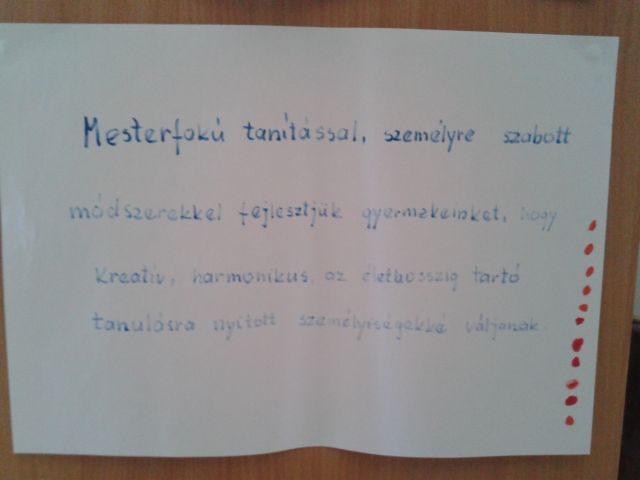 Mesterfokú tanítással, személyre szabott
módszerekkel fejlesztjük gyermekeinket, hogy
kreatív, harmonikus, az élethosszig tartó
tanulásra nyitott személyiségekké váljanak.